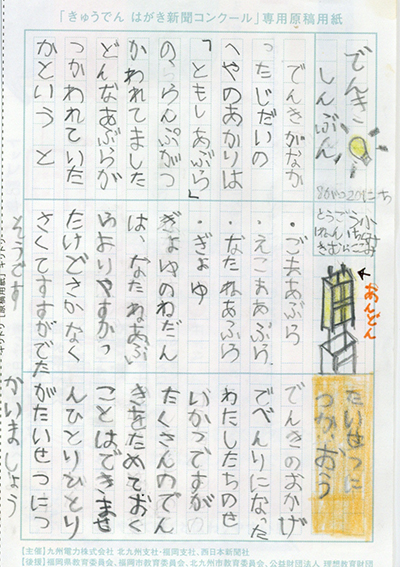 「きゅうでん はがき新聞コンクール」専用原稿用紙
でんき
しんぶん
とうごう小
でんきがなか
ったじだいの
へやのあかりは
「ともしあぶら」
の、らんぷがつ
かわれてました
どんなあぶらが
つかわれていた
かというと
・ごまあぶら
・えごまあぶら
・なたねあぶら
・ぎょゆ
ぎょゆのねだん
は、なたねあぶ
らよりやすかっ
たけどさかなく
さくてすすがでた
そうです
あんどん
たいせつに
つかおう
でんきのおかげ
でべんりになった
わたしたちのせ
いかつですが
たくさんのでん
きをためておく
ことはできませ
んひとりひとり
がたいせつにつ
かいましょう
【主催】九州電力株式会社 北九州支社・福岡支社、西日本新聞社
【後援】福岡県教育委員会、福岡市教育委員会、北九州市教育委員会、公益財団法人 理想教育財団